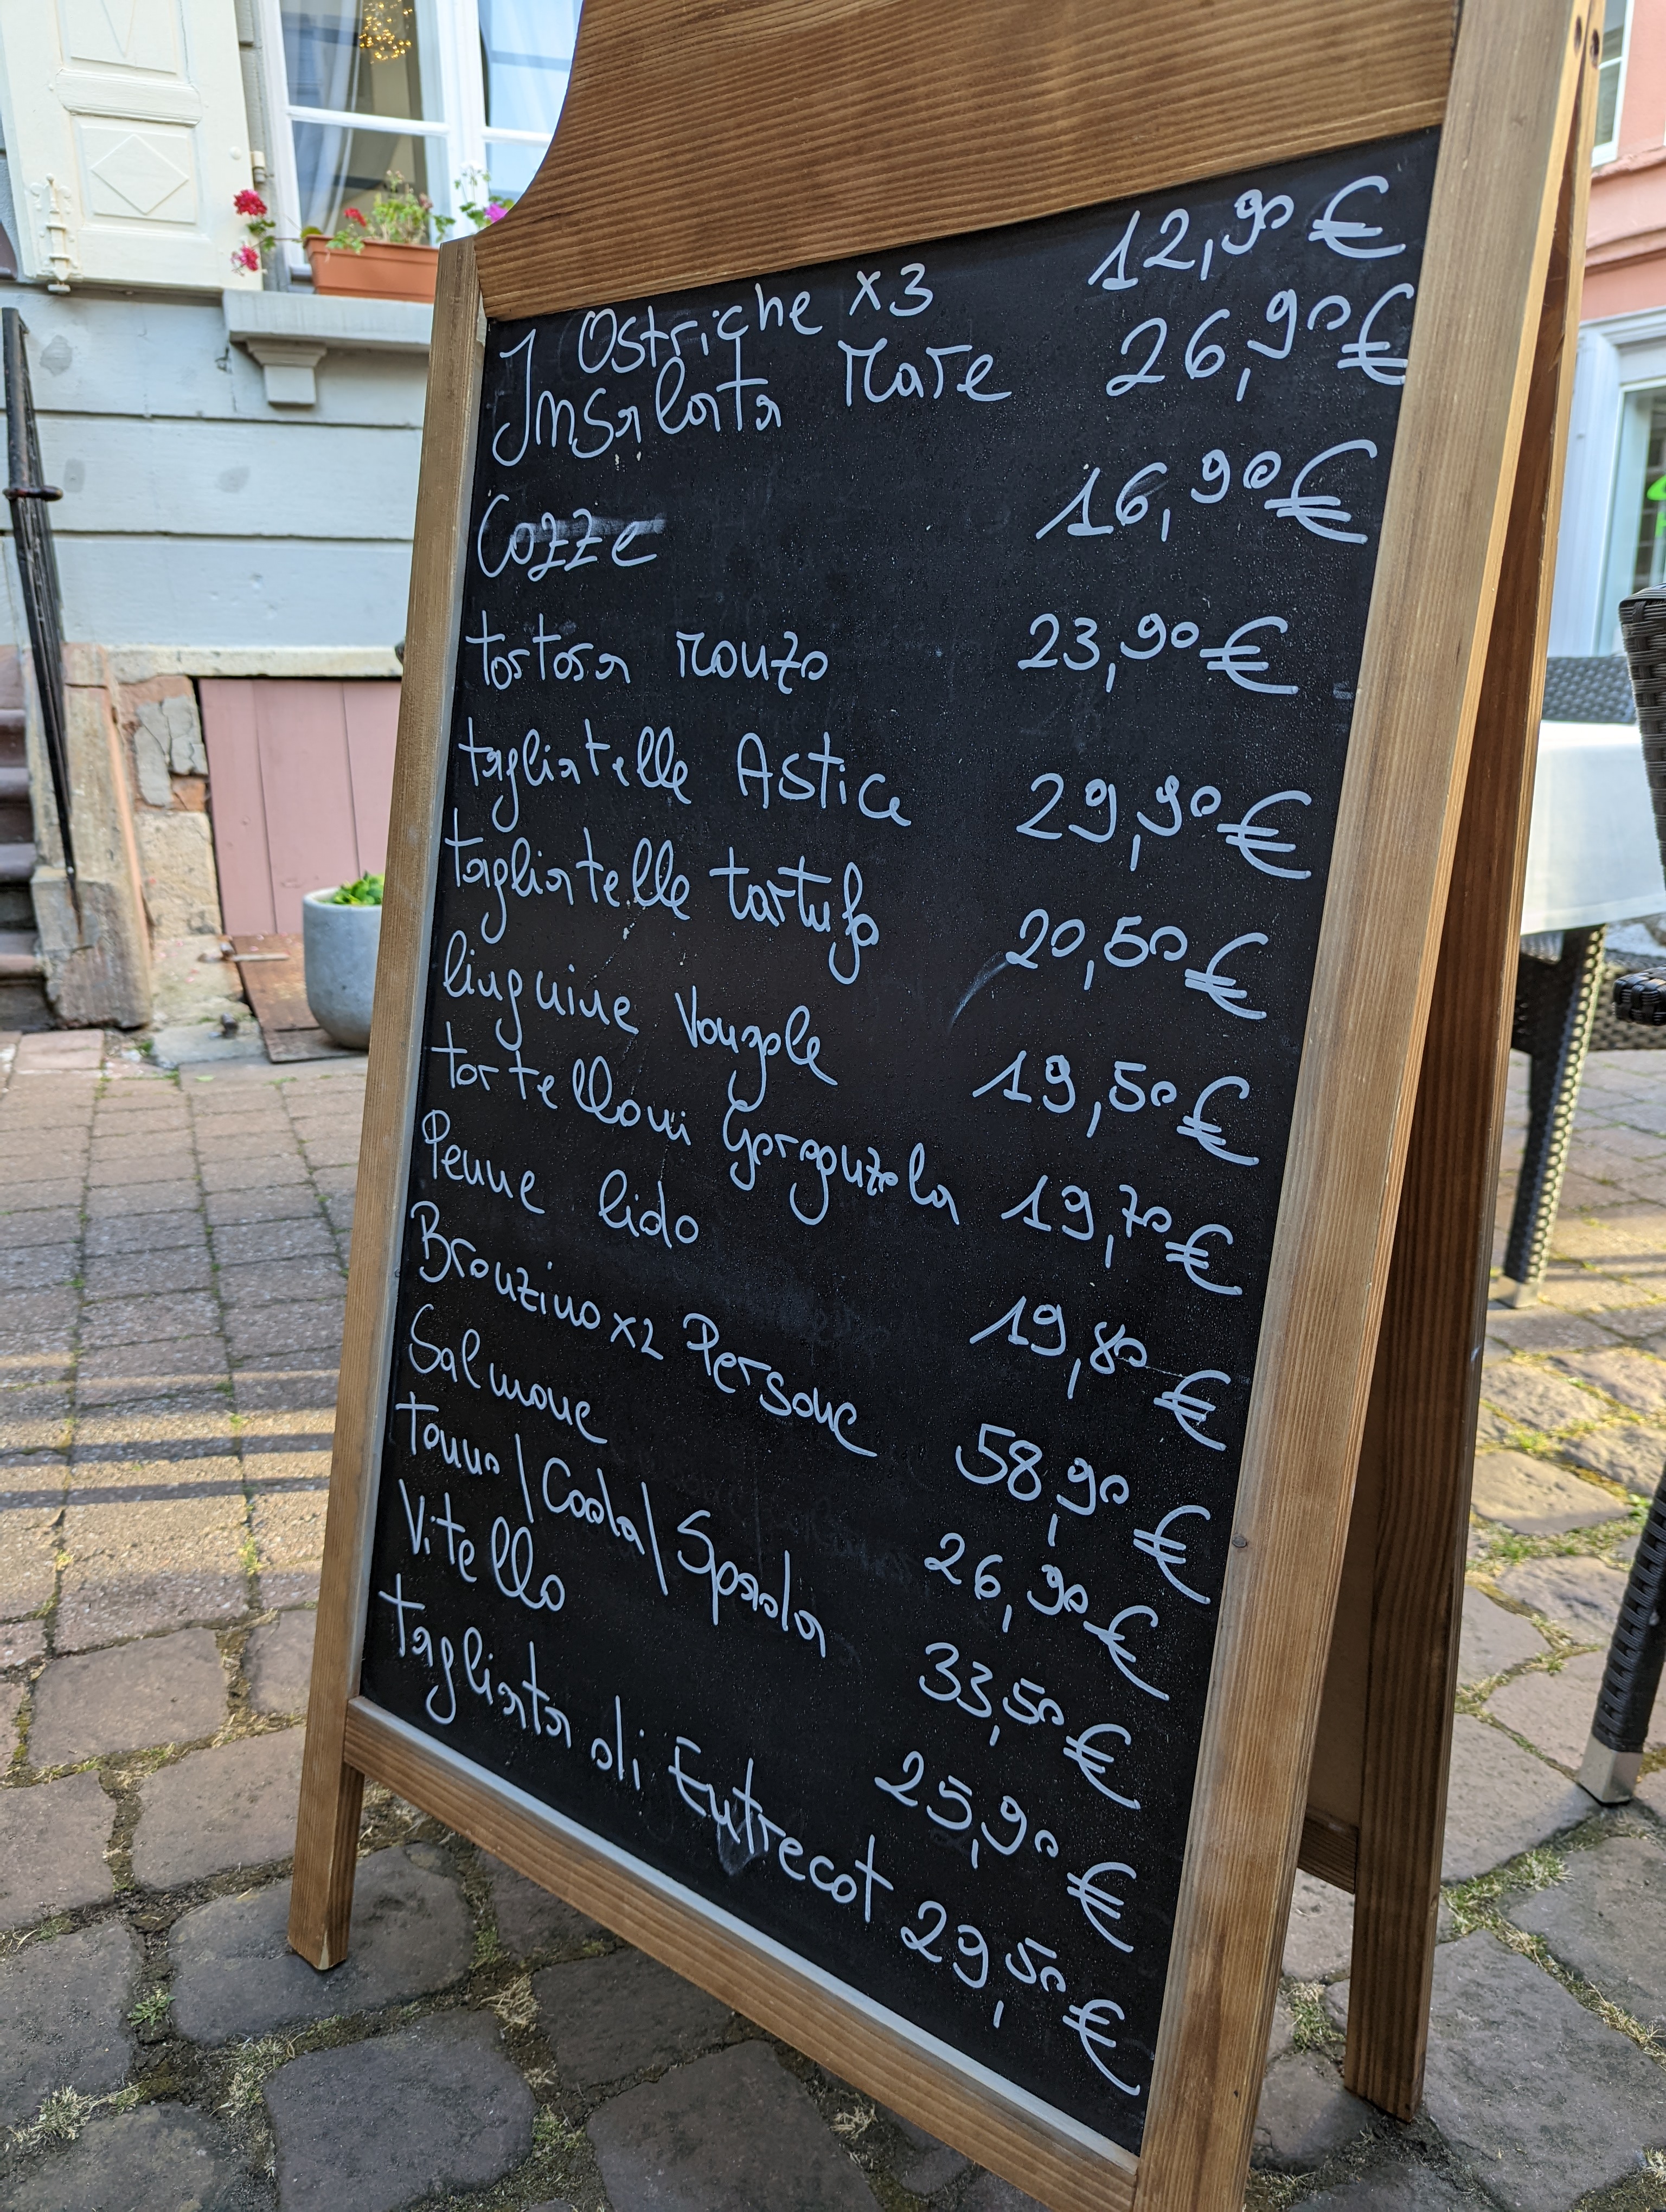 1 Ostriche x3 12,90 €
Insalata Mare 26,90 €
Cozze 16,90 €
tortosa Monzo 23,90 €
tagliatelle Astice 29,90 €
tagliatelle tartufo 20,50 €
linguine Vongole 19,50 €
tortelloni Gorgonzola 19,70 €
Penne lido 19,80 €
Bronzino x2 Persone 58,90 €
Salmone 26,90 €
tonno/Coda/Spada 33,50 €
Vitello 25,90 €
tagliata di Entrecot 29,50 €